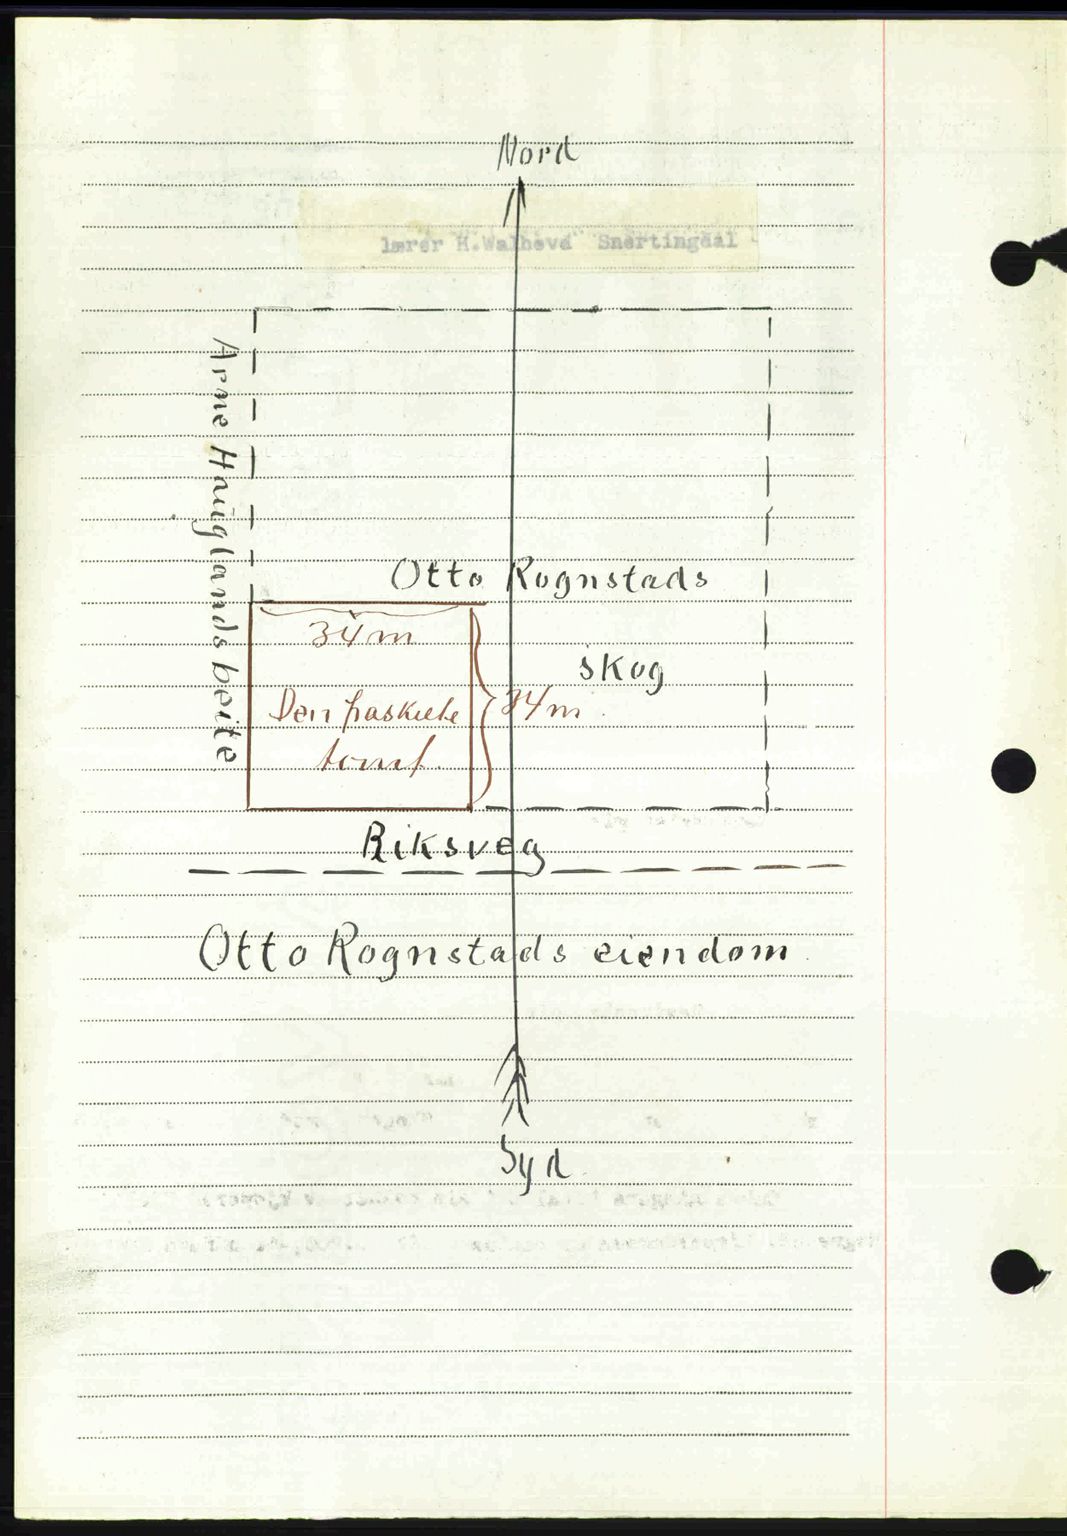 Nord
lærer H.Walhovd Snertingdal
Arne Hauglands beite
Otto Rognstads
skog
34 m
34 m
Den fraskilte
tomt.
Riksveg
Otto Rognstads eiendom
Syd.